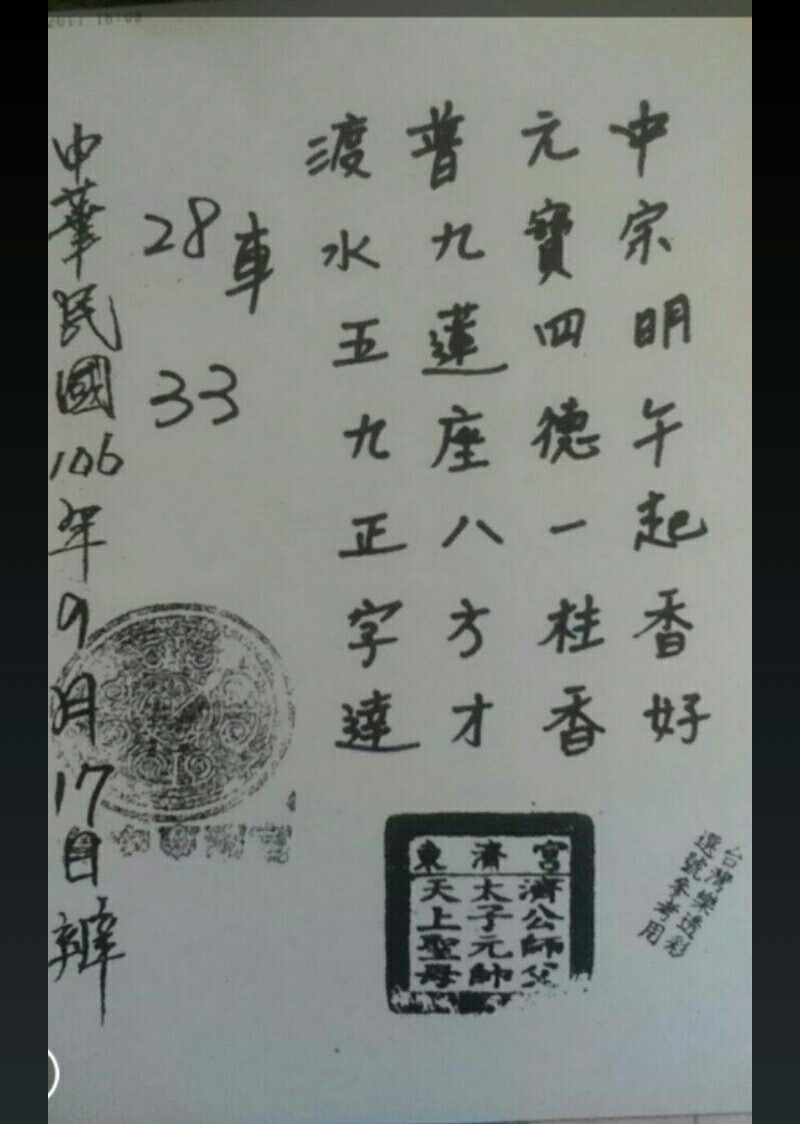 中宗明午起香好
元寶四德一柱香
普九蓮座八方才
渡水五九正字達
車
28
33
中華民國106年9月17日辦
東濟宮
濟公師父
太子元帥
天上聖母
台灣樂透彩
選號參考用